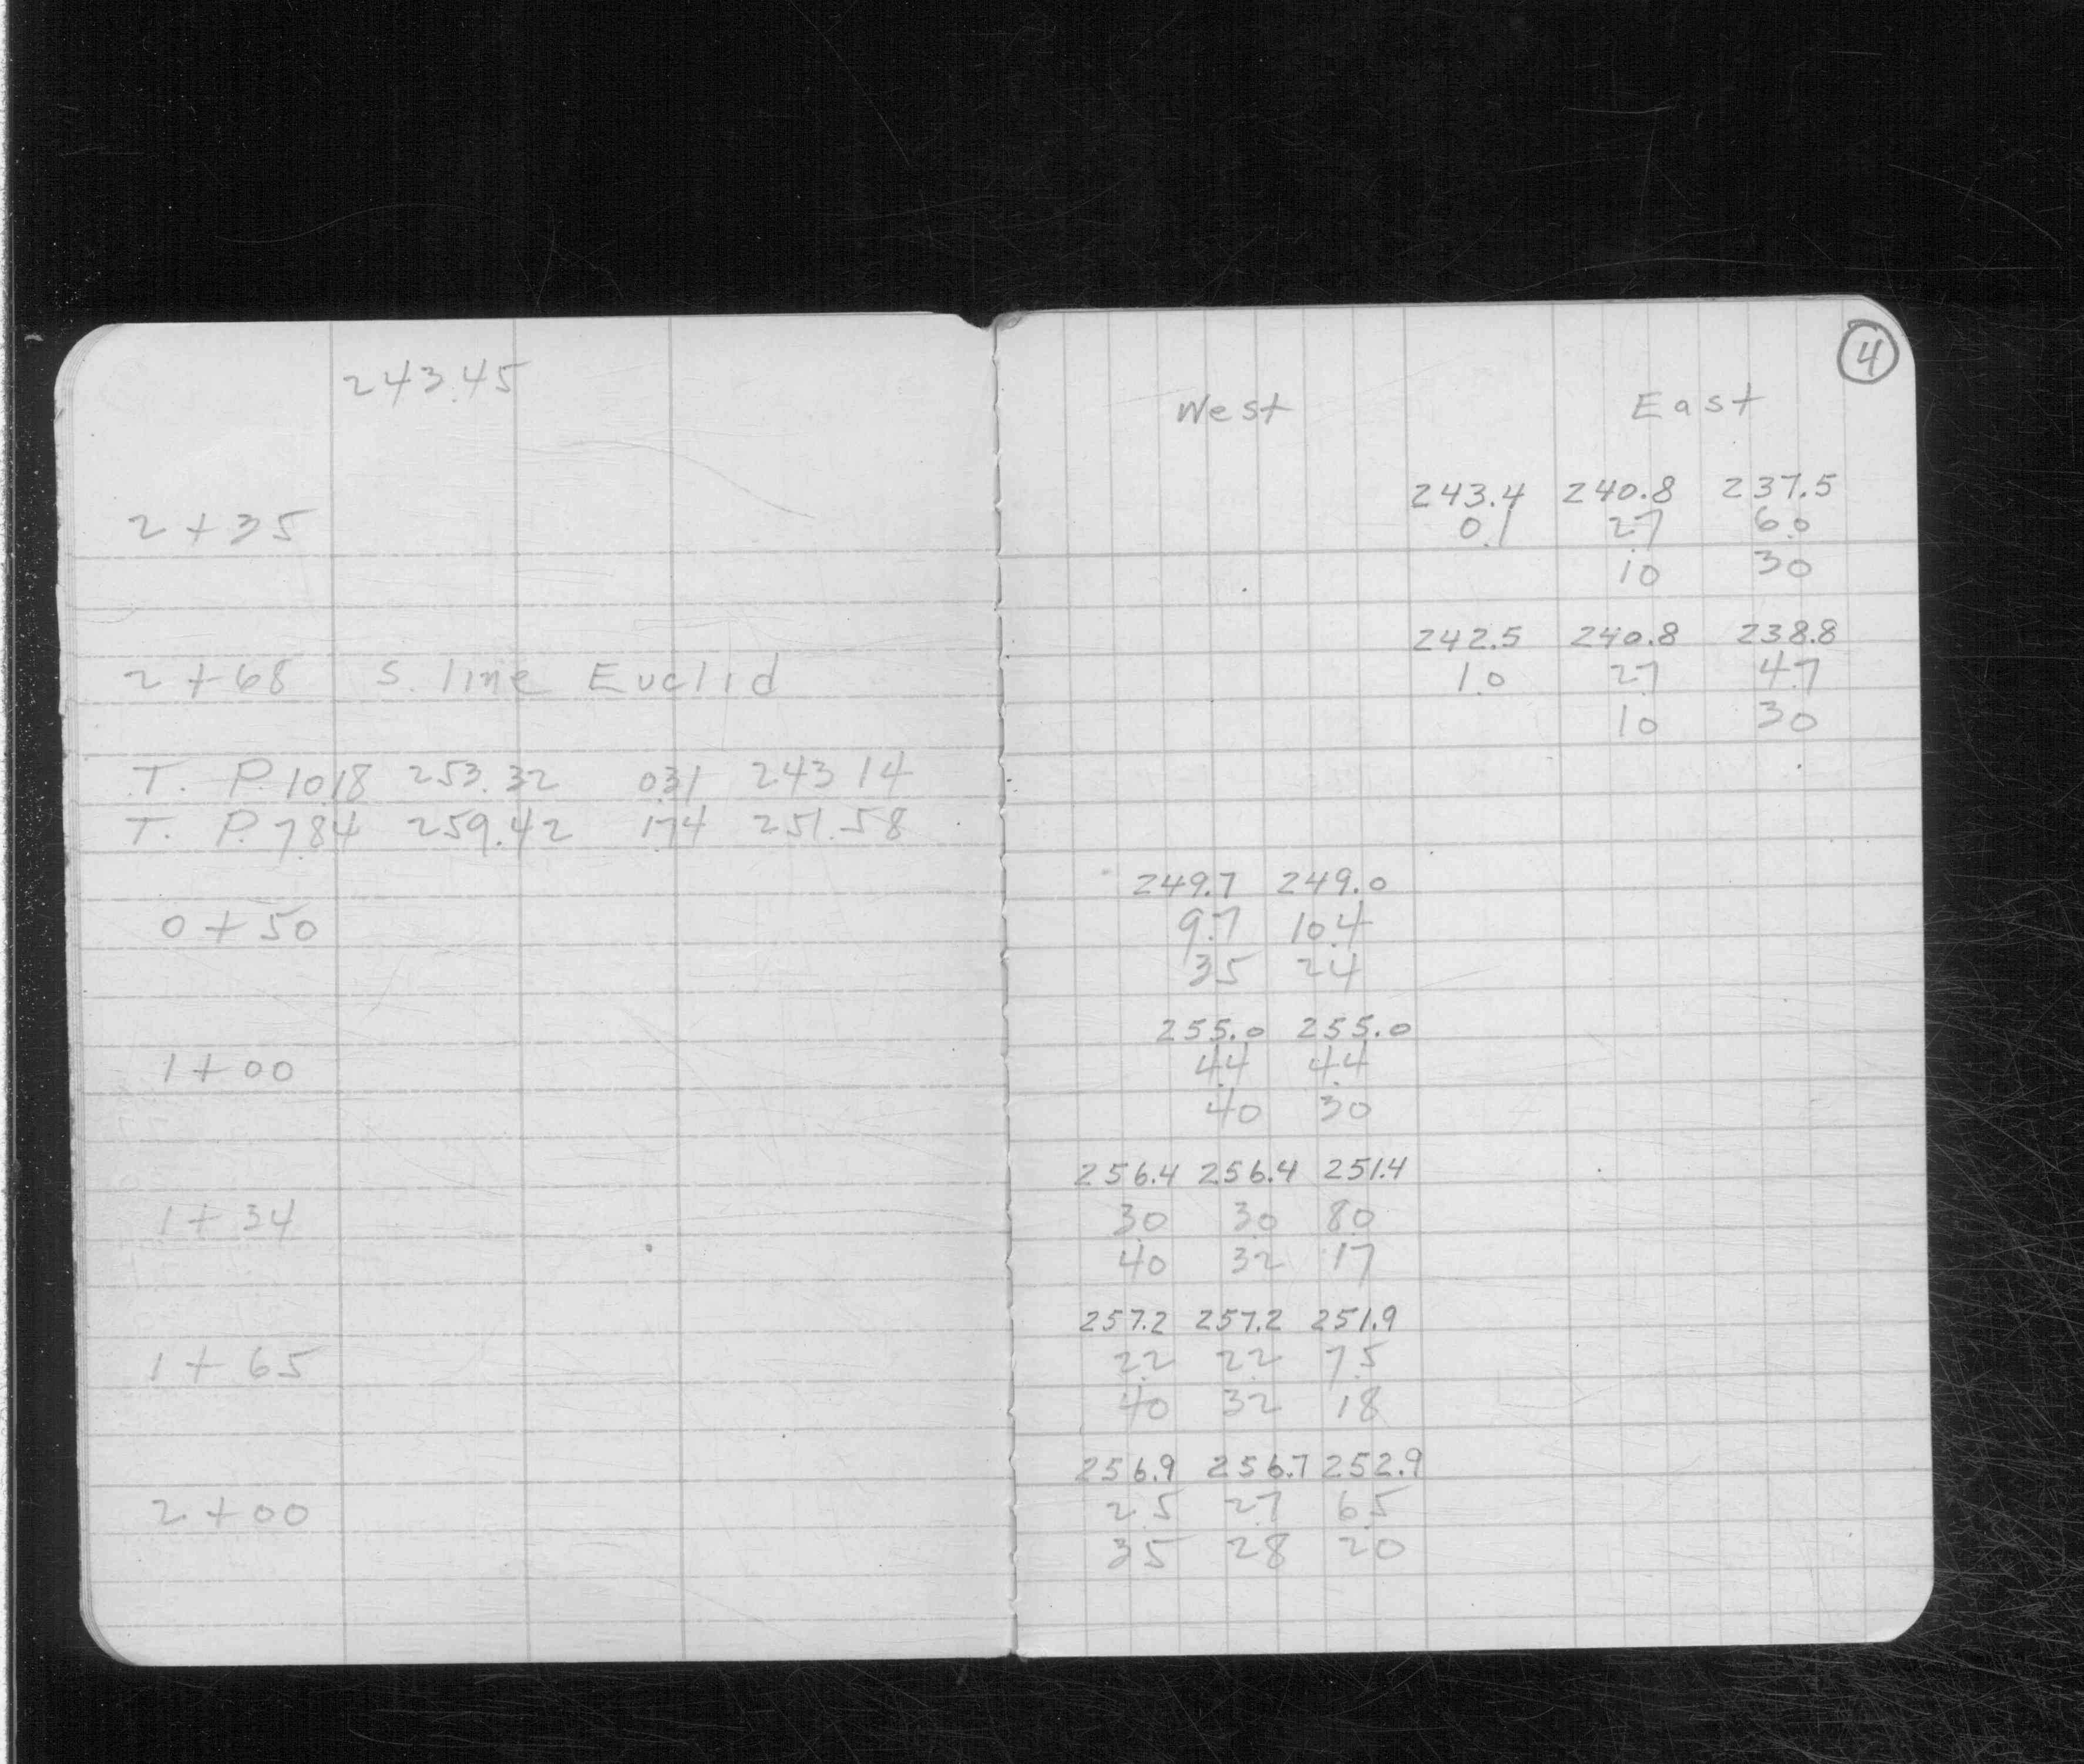 243.45
2+35
2+68 S. line Euclid
T. P. 10.18 253.32 0.31 243.14
T. P. 7.84 259.42 1.74 251.58
0+50
1+00
1+34
1+65
2+00
4
West East
243.4 240.8 237.5
0.1 2.7 6.0
10 30
242.5 240.8 238.8
1.0 2.7 4.7
10 30
249.7 249.0
9.7 10.4
35 24
255.0 255.0
4.4 4.4
40 30
256.4 256.4 251.4
3.0 3.0 8.0
40 32 17
257.2 257.2 251.9
2.2 2.2 7.5
40 32 18
256.9 256.7 252.9
2.5 2.7 6.5
35 28 20